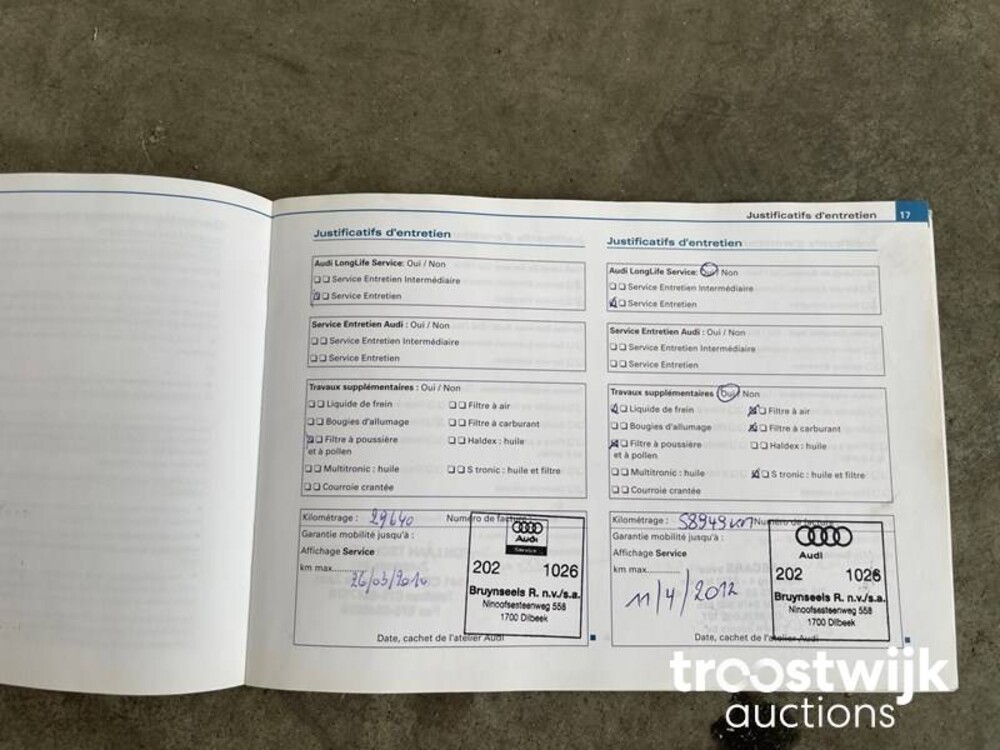 Justificatifs d'entretien 17
Justificatifs d'entretien
Audi LongLife Service: Oui / Non
Service Entretien Intermédiaire
Service Entretien
Service Entretien Audi : Oui / Non
Service Entretien Intermédiaire
Service Entretien
Travaux supplémentaires : Oui / Non
Liquide de frein Filtre à air
Bougies d'allumage Filtre à carburant
Filtre à poussière Haldex : huile
et à pollen
Multitronic : huile S tronic : huile et filtre
Courroie crantée
Kilométrage : 29640 Numéro de facture :
Garantie mobilité jusqu'à :
Affichage Service
km max.......... 26/03/2010
Audi
Service
202 1026
Bruynseels R. n.v./s.a.
Ninoofsesteenweg 558
1700 Dilbeek
Date, cachet de l'atelier Audi
Justificatifs d'entretien
Audi LongLife Service: Oui / Non
Service Entretien Intermédiaire
Service Entretien
Service Entretien Audi : Oui / Non
Service Entretien Intermédiaire
Service Entretien
Travaux supplémentaires : Oui / Non
Liquide de frein Filtre à air
Bougies d'allumage Filtre à carburant
Filtre à poussière Haldex : huile
et à pollen
Multitronic : huile S tronic : huile et filtre
Courroie crantée
Kilométrage : 58949 km Numéro de facture
Garantie mobilité jusqu'à :
Affichage Service
km max..........
11/4/2012
Audi
202 1026
Bruynseels R. n.v./s.a.
Ninoofsesteenweg 558
1700 Dilbeek
Date, cachet de l'atelier Audi
troostwijk
auctions